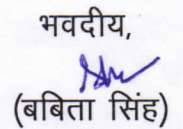 भवदीय,
(बबिता सिंह)